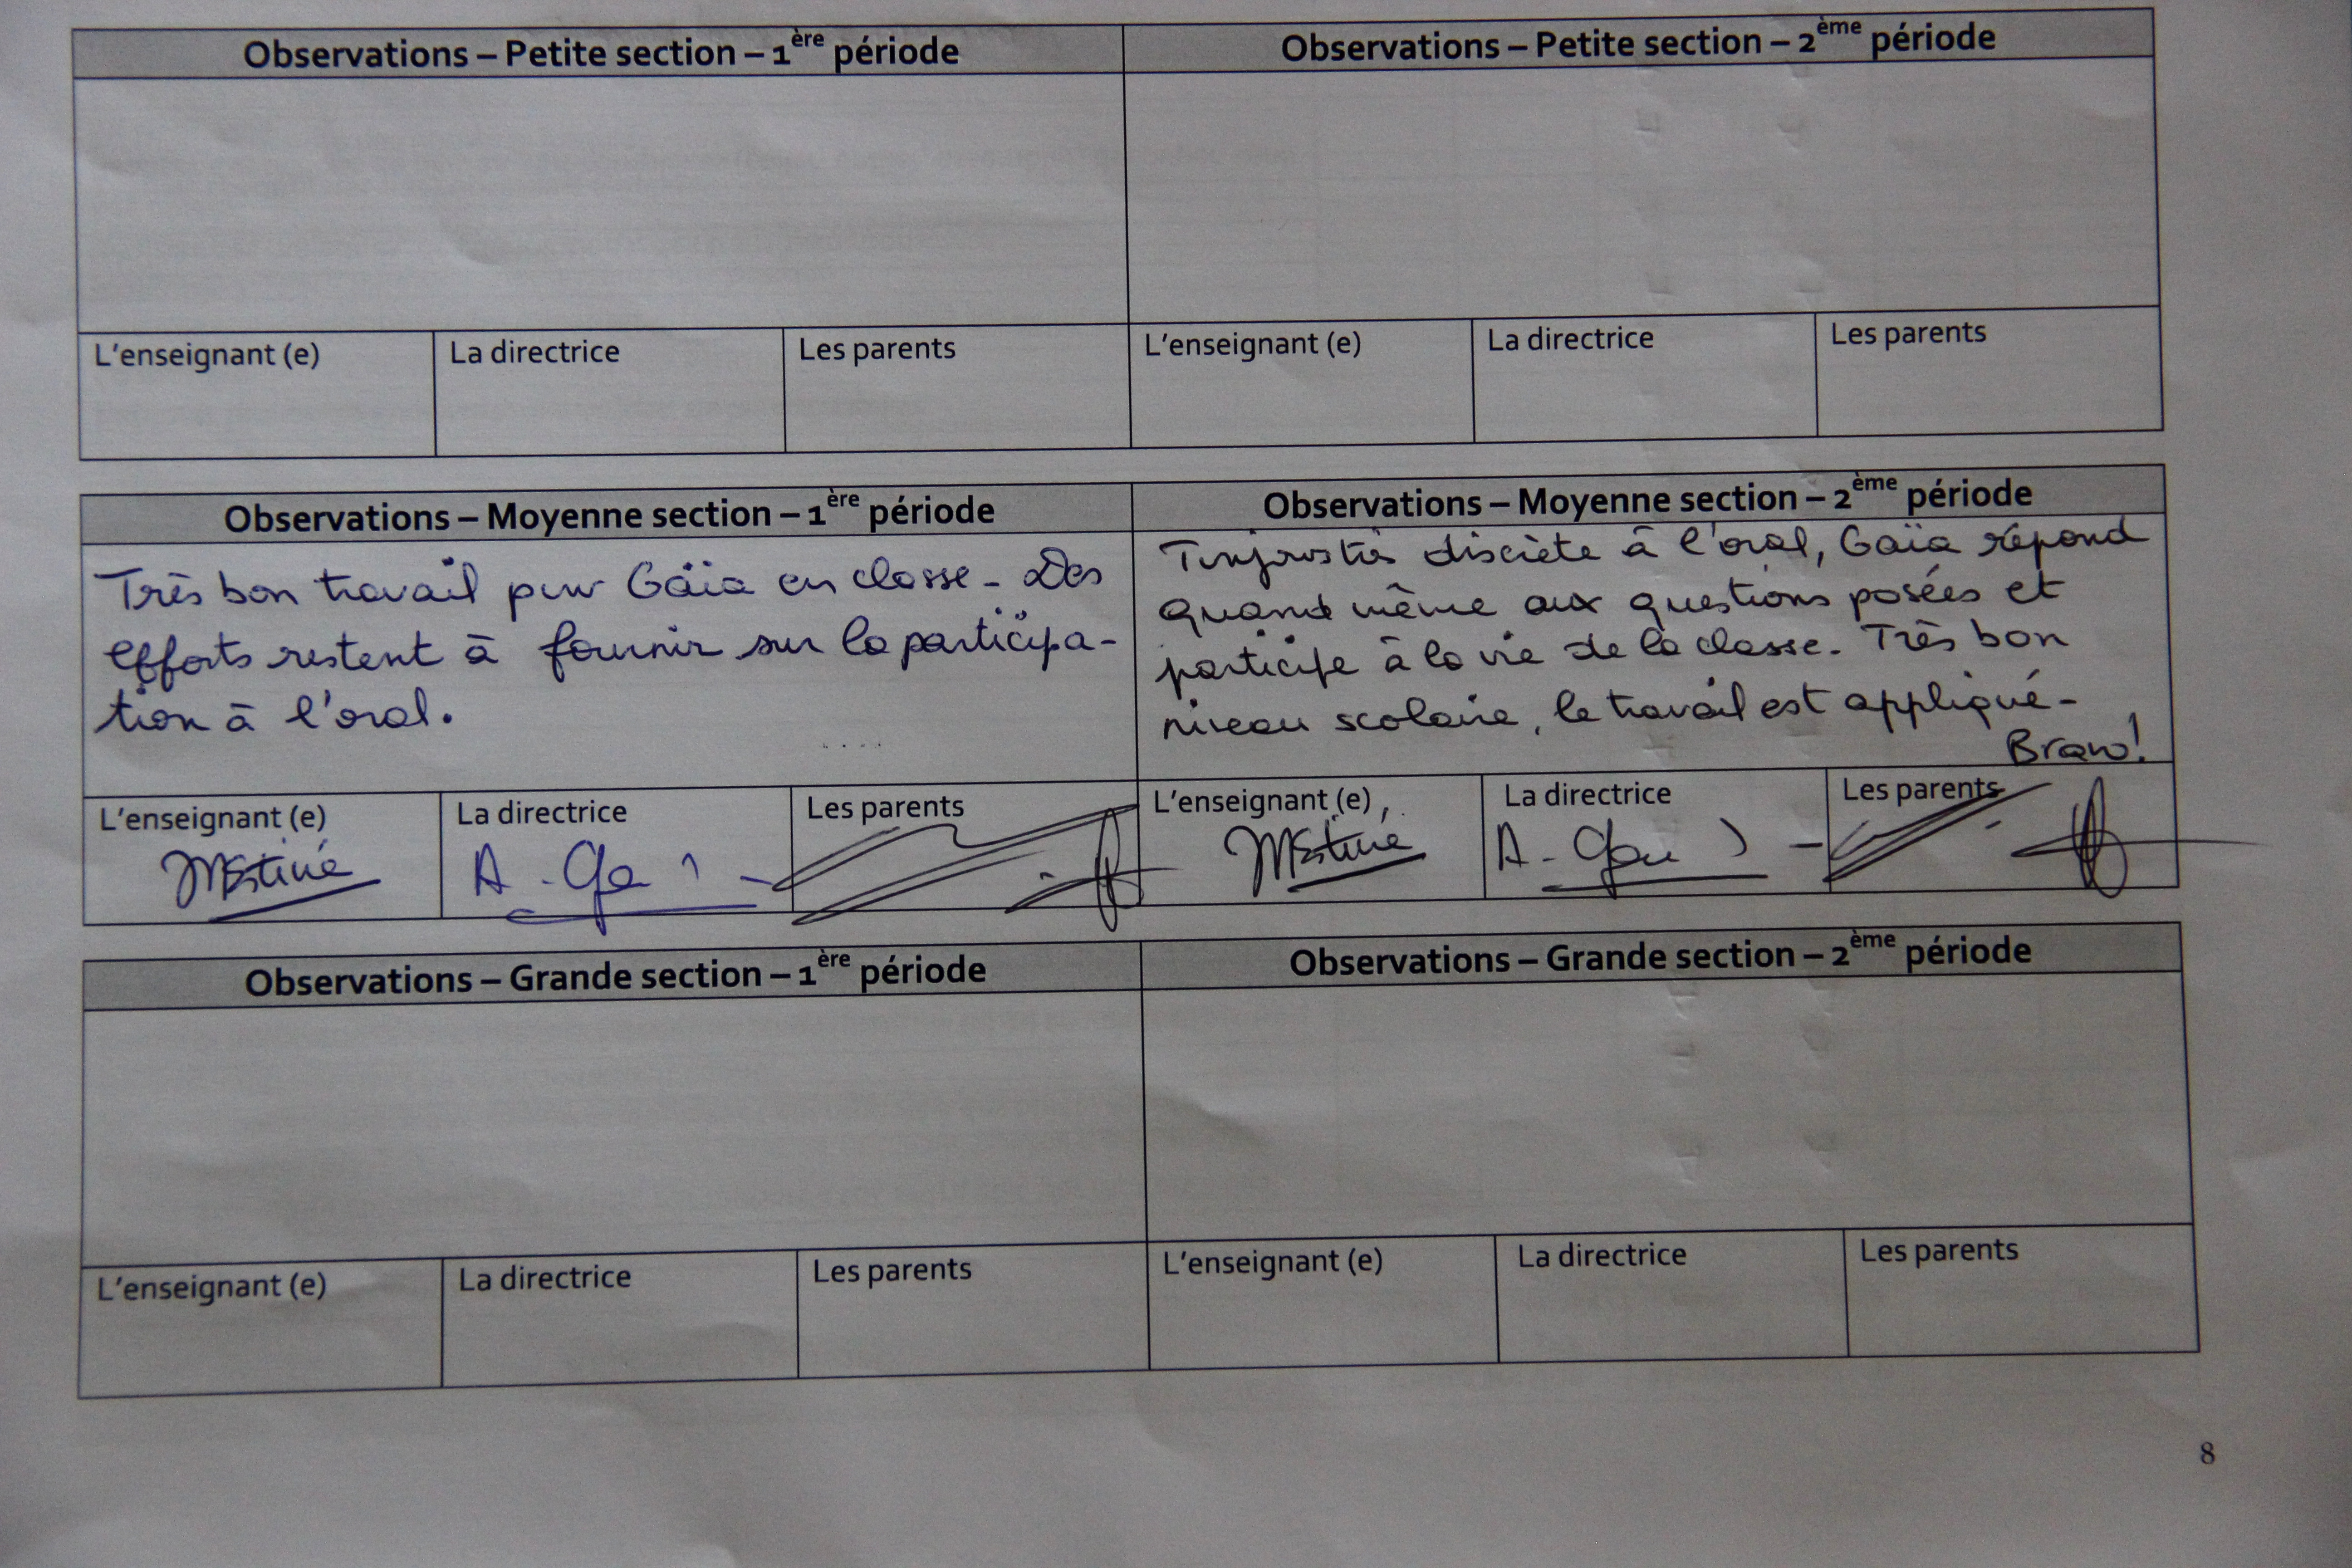 Observations – Petite section – 1ère période
Observations – Petite section – 2ème période
L'enseignant (e)
La directrice
Les parents
L'enseignant (e)
La directrice
Les parents
Observations – Moyenne section – 1ère période
Très bon travail pour Gaïa en classe - Des
efforts restent à fournir sur la participa-
tion à l'oral.
Observations – Moyenne section – 2ème période
discrète à l'oral, Gaïa répond
quand même aux questions posées et
participe à la vie de la classe. Très bon
niveau scolaire, le travail est appliqué -
Bravo!
L'enseignant (e)
La directrice
Les parents
L'enseignant (e)
La directrice
Les parents
Observations – Grande section – 1ère période
Observations – Grande section – 2ème période
L'enseignant (e)
La directrice
Les parents
L'enseignant (e)
La directrice
Les parents
8